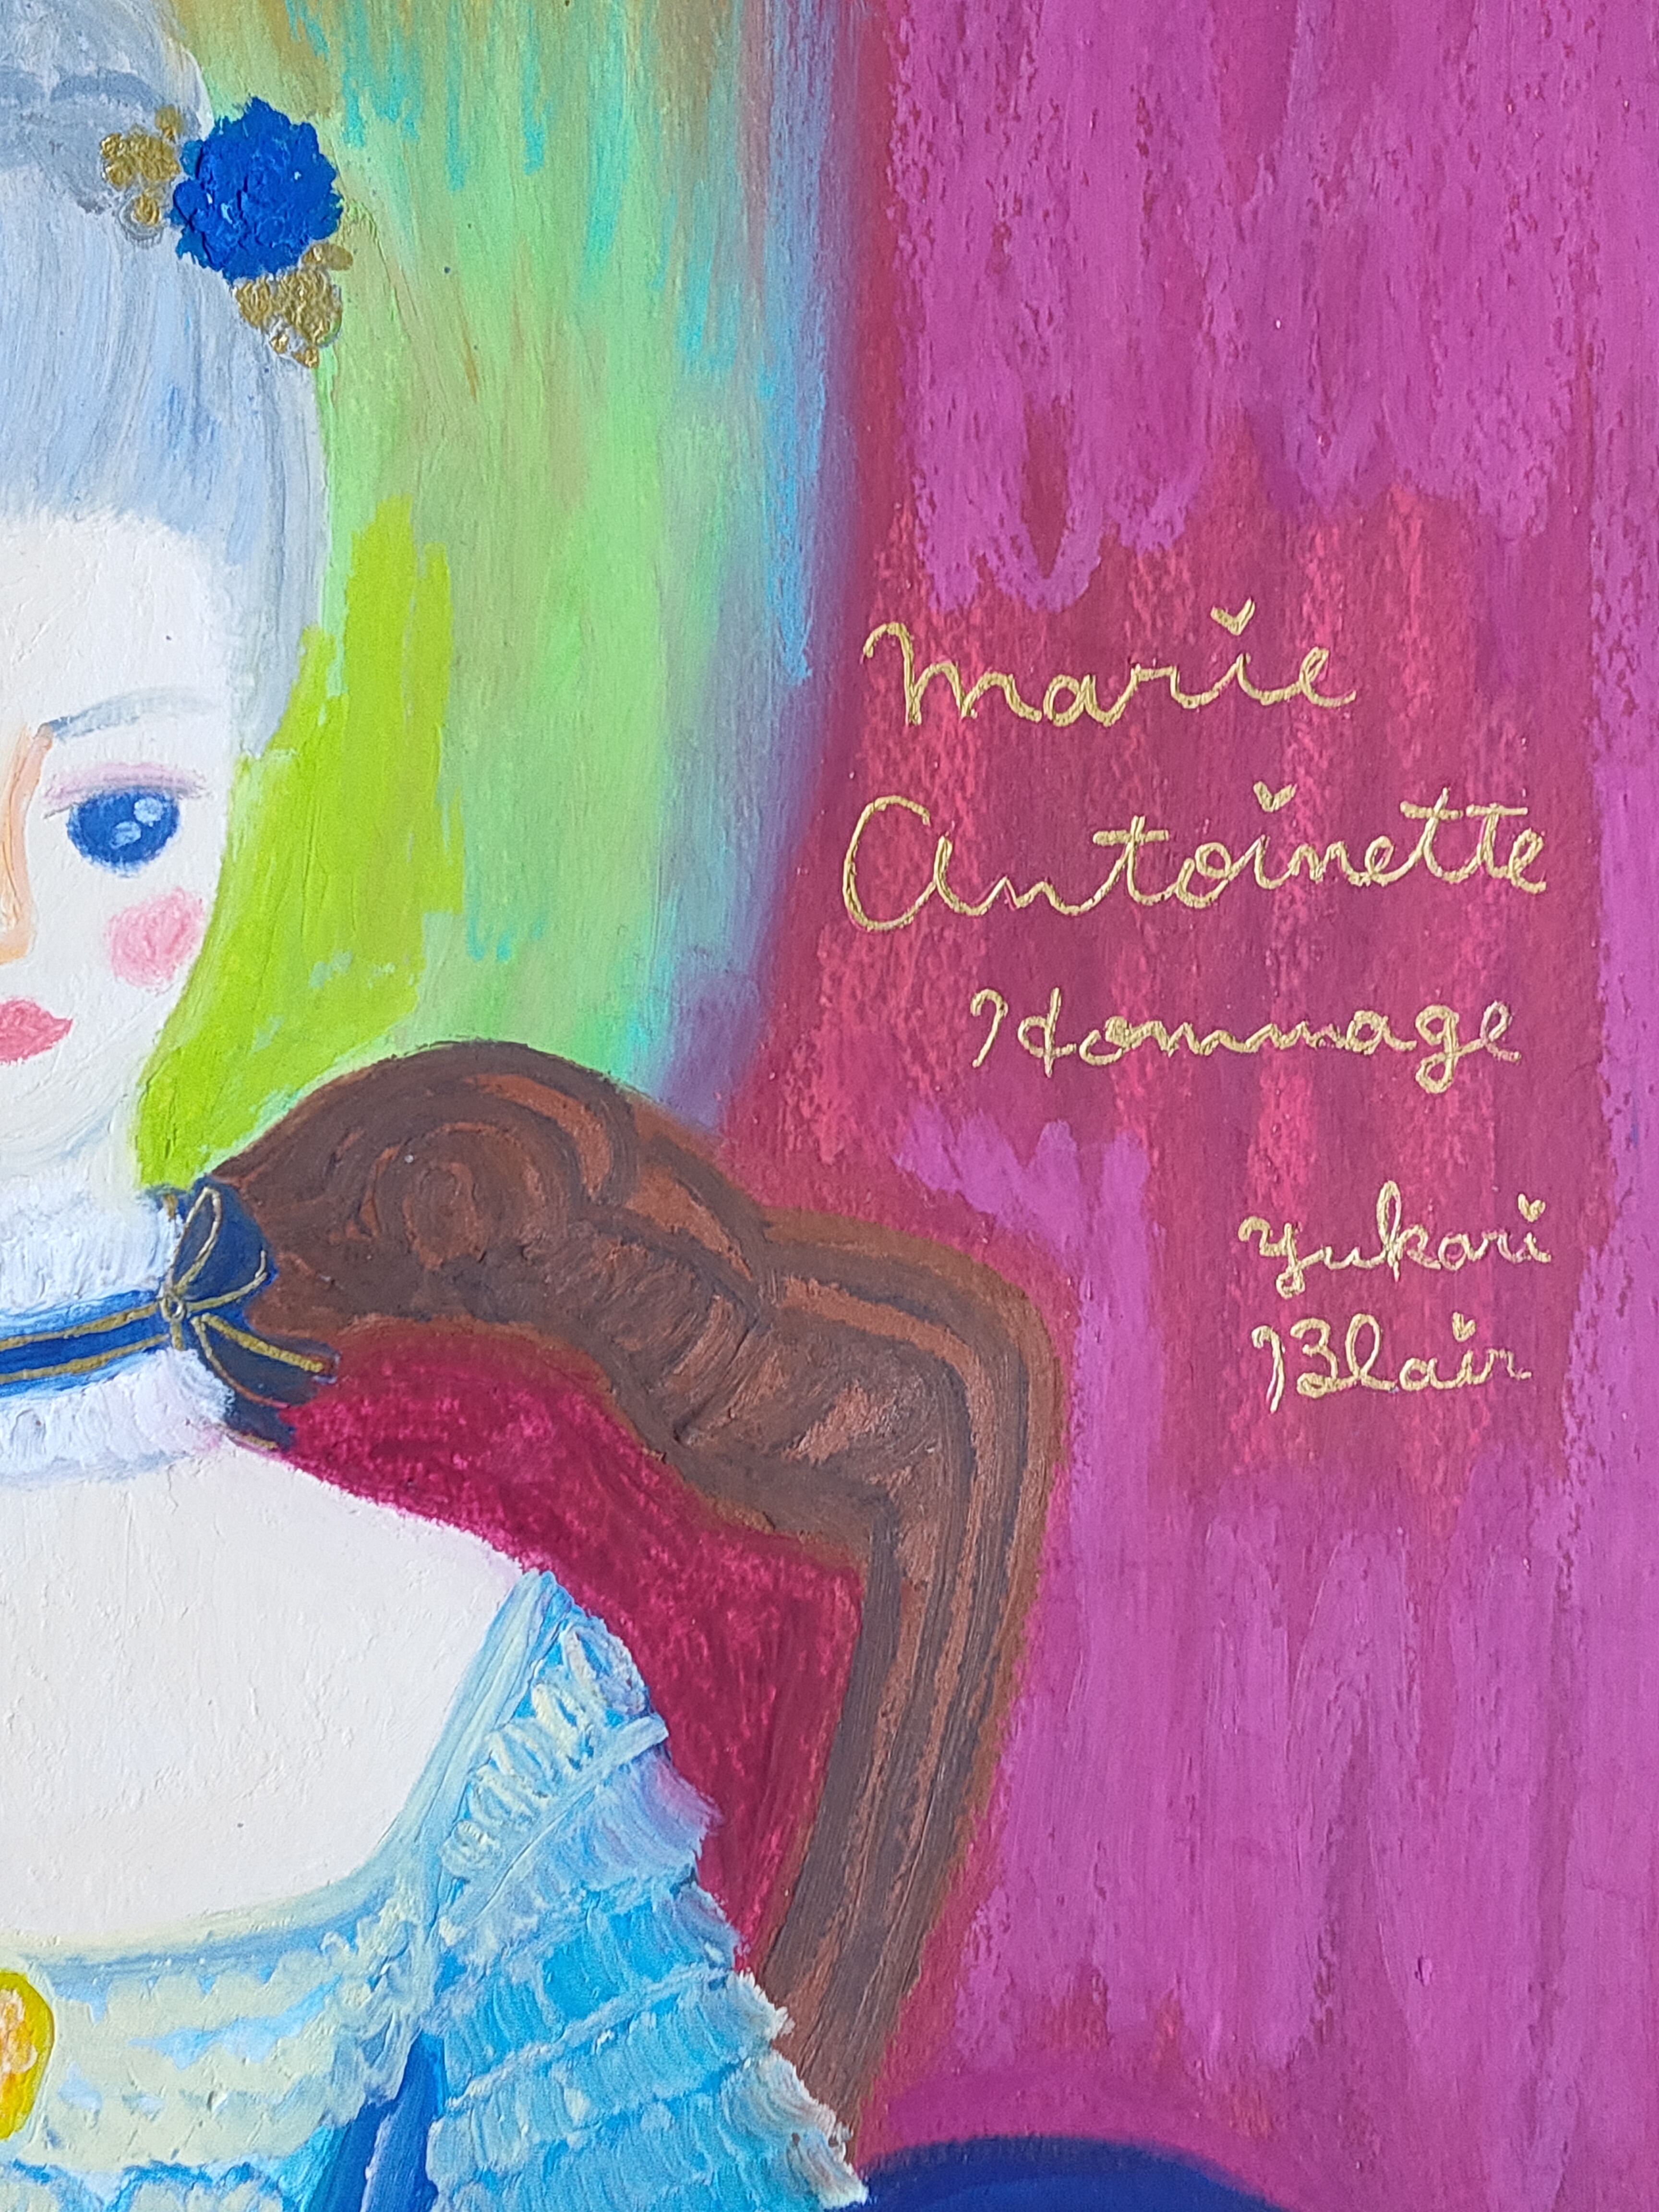 Marie
Antoinette
Hommage
yukari
Blair